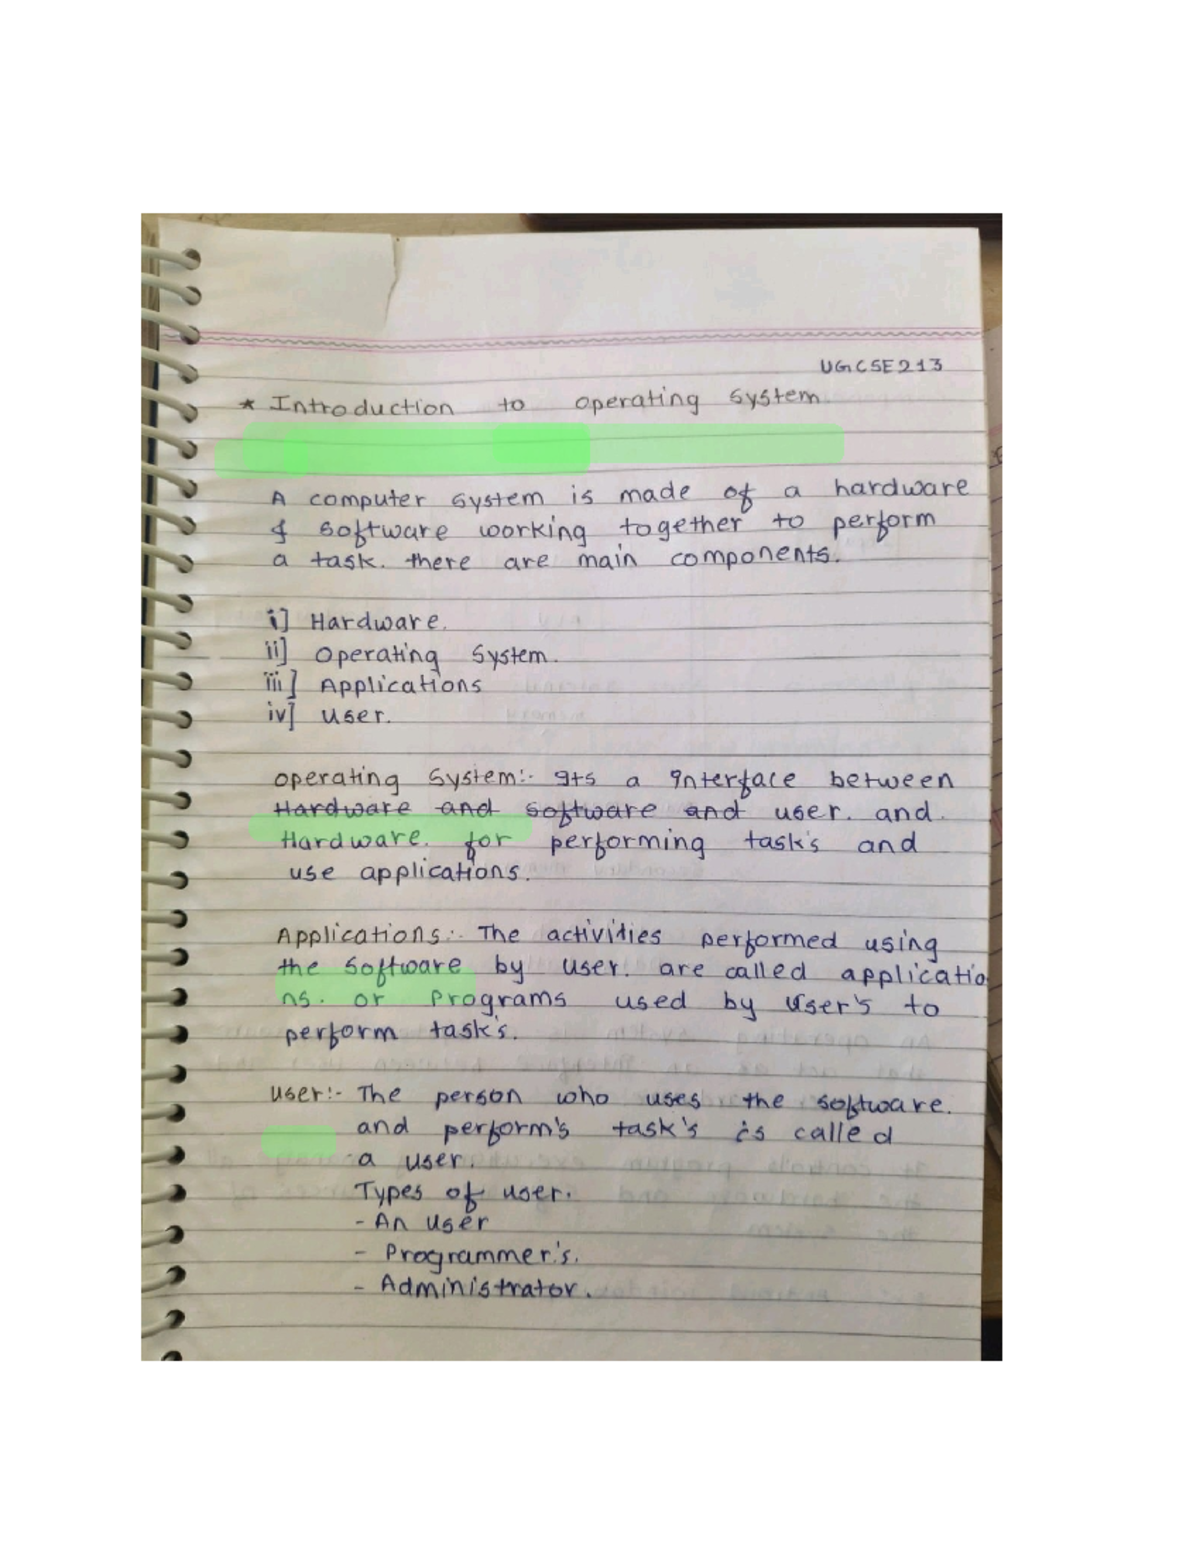 UGCSE213
* Introduction to operating System
A computer System is made of a hardware
& software working together to perform
a task. there are main components.
i] Hardware.
ii] Operating System.
iii] Applications
iv] User.
Operating System:- Its a Interface between
Hardware and software and user. and.
Hardware. for performing task's and
use applications.
Applications:- The activities performed using
the Software by user. are called applicatio
ns. or Programs used by User's to
perform task's.
User:- The person who uses the software.
and perform's task's is called
a user.
Types of user.
- An User
- Programmer's.
- Administrator.